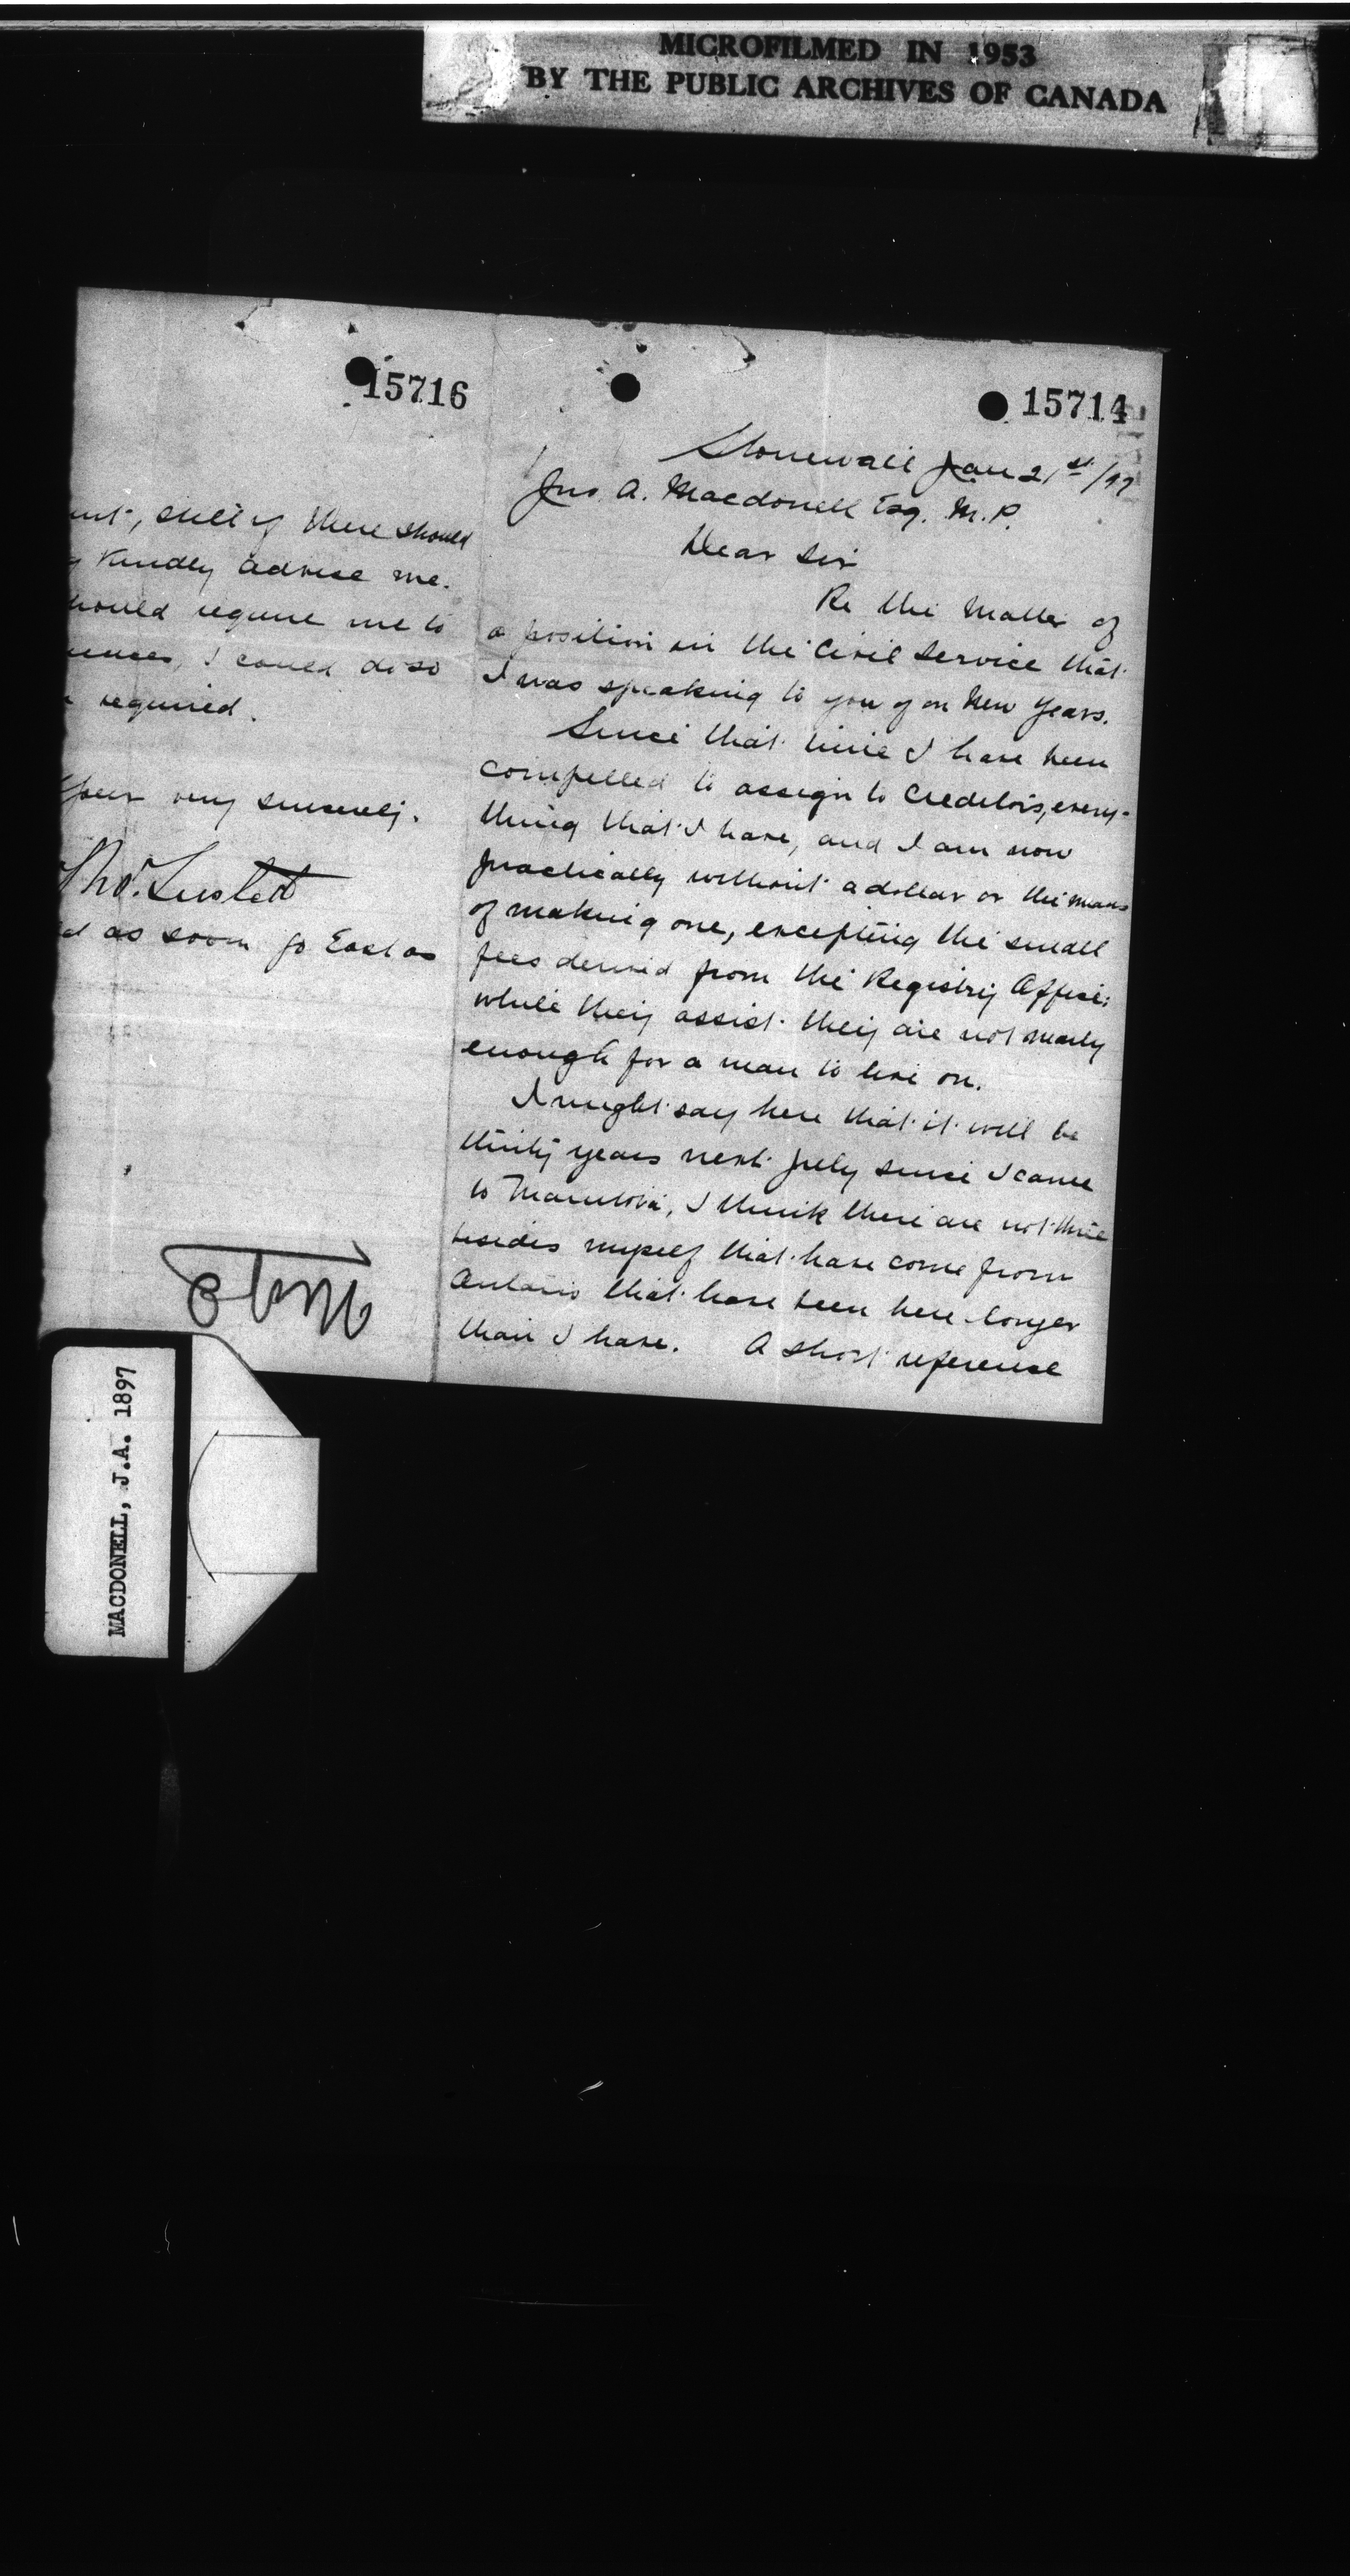 MICROFILMED IN 1953
BY THE PUBLIC ARCHIVES OF CANADA
15716
still if there should
Kindly advise me.
require me to
I could do so
required.
Yours very sincerely.
Tho. Lusted
as soon go East as
15714
Stonewall Jan 21st/97
Jno. A. Macdonell Esq. M.P.
Dear Sir
Re the matter of
a position in the Civil Service that
I was speaking to you of on New Years.
Since that time I have been
compelled to assign to Creditors, every-
thing that I have, and I am now
practically without a dollar or the means
of making one, excepting the small
fees derived from the Registry Office;
while they assist they are not nearly
enough for a man to live on.
I might say here that it will be
thirty years next July since I came
to Manitoba, I think there are not three
besides myself that have come from
Ontario that have been here longer
than I have. A short reference
MACDONELL, J.A. 1897